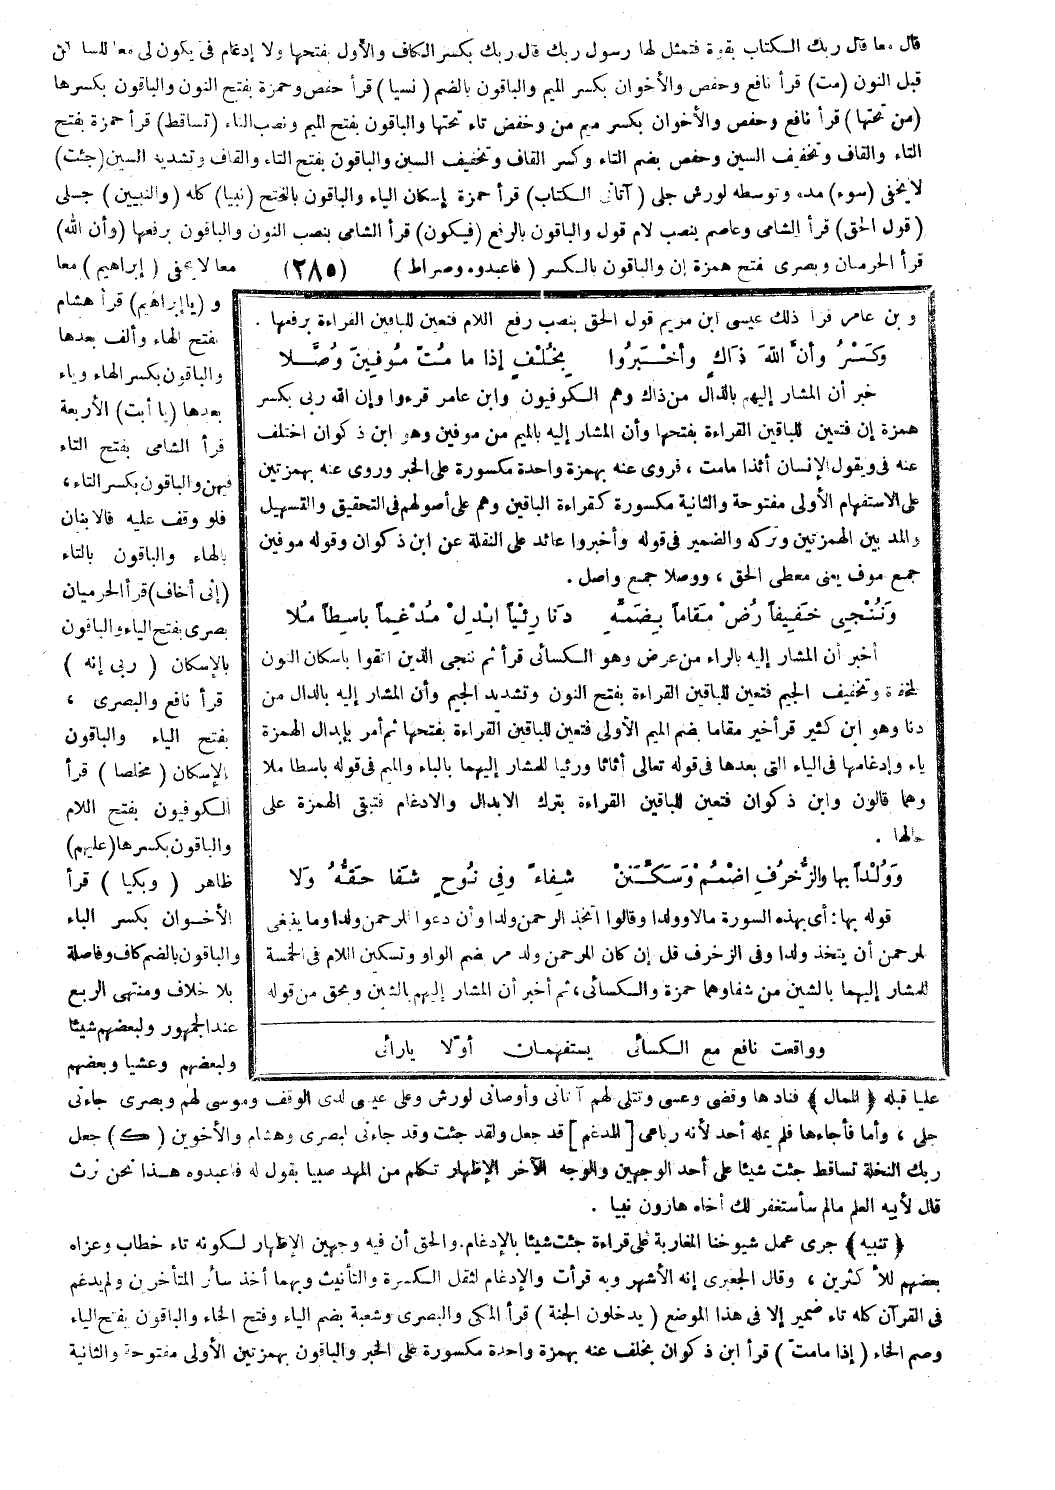 قال معا قال ربك الكتاب بقوة فتمثل لها رسول ربك قال ربك بكسر الكاف والأول بفتحها ولا إدغام فى يكون لى معا للساكن
قبل النون (مت) قرأ نافع وحفص والأخوان بكسر الميم والباقون بالضم (نسيا) قرأ حفص وحمزة بفتح النون والباقون بكسرها
(من تحتها) قرأ نافع وحفص والأخوان بكسر ميم من وخفض تاء تحتها والباقون بفتح الميم ونصب التاء (تساقط) قرأ حمزة بفتح
التاء والقاف وتخفيف السين وحفص بضم التاء وكسر القاف وتخفيف السين والباقون بفتح التاء والقاف وتشديد السين (جئت)
لا يخفى (سوء) مده وتوسطه لورش جلى (آتانى الكتاب) قرأ حمزة بإسكان الياء والباقون بالفتح (نبيا) كله (والنبيين) جلى
(قول الحق) قرأ الشامى وعاصم بنصب لام قول والباقون بالرفع (فيكون) قرأ الشامى بنصب النون والباقون برفعها (وأن الله)
قرأ الحرميان وبصرى بفتح همزة إن والباقون بالكسر (فاعبدوه وصراط) (٢٨٥) معا لا يخفى (إبراهيم) معا
و (يا إبراهيم) قرأ هشام
بفتح الهاء وألف بعدها
والباقون بكسر الهاء وياء
بعدها (يا أبت) الأربعة
قرأ الشامى بفتح التاء
فيهن والباقون بكسر التاء ،
فلو وقف عليه فالابنان
بالهاء والباقون بالتاء
(إنى أخاف) قرأ الحرميان
بصرى بفتح الياء والباقون
بالإسكان (ربى إنه)
قرأ نافع والبصرى ،
بفتح الياء والباقون
الإسكان (مخلصا) قرأ
الكوفيون بفتح اللام
والباقون بكسرها (عليهم)
ظاهر (وبكيا) قرأ
الأخوان بكسر الباء
والباقون بالضم كاف وفاصلة
بلا خلاف ومنتهى الربع
عند الجمهور ولبعضهم شيئا
ولبعضهم وعشيا وبعضهم
وبن عامر قرأ ذلك عيسى ابن مريم قول الحق بنصب رفع اللام فتعين للباقين القراءة برفعها .
وَكَسْرُ وأنَّ اللهَ ذَاكٍ وأَخْبَرُوا بِخُلْفٍ إذا ما مُتُّ مُوفِينَ وُصَّلا
خبر أن المشار إليهم بالذال من ذاك وهم الكوفيون وابن عامر قرءوا وإن الله ربى بكسر
همزة إن فتعين للباقين القراءة بفتحها وأن المشار إليه بالميم من موفين وهو ابن ذكوان اختلف
عنه فى ويقول الإنسان أئذا مامت ، فروى عنه بهمزة واحدة مكسورة على الخبر وروى عنه بهمزتين
على الاستفهام الأولى مفتوحة والثانية مكسورة كقراءة الباقين وهم على أصولهم فى التحقيق والتسهيل
والمد بين الهمزتين وتركه والضمير فى قوله وأخبروا عائد على النقلة عن ابن ذكوان وقوله موفين
جمع موف يعنى معطى الحق ، ووصلا جمع واصل .
وَنُنْجِى خَفِيفاً رُضْ مَقاماً بِضَمِّهِ دَنا رِئْياً ابْدِلْ مُدْغِماً باسِطاً مُلا
أخبر أن المشار إليه بالراء من عرض وهو الكسائى قرأ ثم ننجى الذين اتقوا باسكان النون
لمخففة وتخفيف الجيم فتعين للباقين القراءة بفتح النون وتشديد الجيم وأن المشار إليه بالدال من
دنا وهو ابن كثير قرأ خير مقاما بضم الميم الأولى فتعين للباقين القراءة بفتحها ثم أمر بإبدال الهمزة
ياء وإدغامها فى الياء التى بعدها فى قوله تعالى أثاثا ورئيا للمشار إليهما بالباء والميم فى قوله باسطا ملا
وهما قالون وابن ذكوان فتعين للباقين القراءة بترك الابدال والادغام فتبقى الهمزة على
حالها .
وَوُلْداً بِها والزُّخْرُفِ اضْمُمْ وَسَكِّنَنْ شِفاءً وفِى نُوحٍ شَفا حَقَّهُ وَلا
قوله بها : أى بهذه السورة مالا وولدا وقالوا اتخذ الرحمن ولدا وأن دعوا للرحمن ولدا وما ينبغى
للرحمن أن يتخذ ولدا وفى الزخرف قل إن كان للرحمن ولد مر بضم الواو وتسكين اللام فى الخمسة
للمشار إليهما بالشين من شفا وهما حمزة والكسائى ، ثم أخبر أن المشار إليهم بالشين وبحق من قوله
ووافعت نافع مع الكسائى يستفهمان أوّلا يارائى
عليا قبله ﴿ الممال ﴾ فناداها وقضى وعسى وتتلى لهم آتانى وأوصانى لورش وعلى عيسى لدى الوقف وموسى لهم وبصرى جاءنى
جلى ، وأما فأجاءها فلم يمله أحد لأنه رباعى [المدغم] قد جعل ولقد جئت وقد جاءنى لبصرى وهشام والأخوين (ك) جعل
ربك النخلة تساقط جئت شيئا على أحد الوجهين والوجه الآخر الإظهار نكلم من المهد صبيا يقول له فاعبدوه هذا نحن نرث
قال لأبيه العلم مالم سأستغفر لك أخاه هارون نبيا .
﴿ تنبيه ﴾ جرى عمل شيوخنا المغاربة على قراءة جئت شيئا بالإدغام . والحق أن فيه وجهين الإظهار لكونه تاء خطاب وعزاه
بعضهم للأكثرين ، وقال الجعبرى إنه الأشهر وبه قرأت والإدغام لثقل الكسرة والتأنيث وبهما أخذ سائر المتأخرين ولم يدغم
فى القرآن كله تاء ضمير إلا فى هذا الموضع (يدخلون الجنة) قرأ المكى والبصرى وشعبة بضم الياء وفتح الخاء والباقون بفتح الياء
وضم الخاء (إذا مامت) قرأ ابن ذكوان بخلف عنه بهمزة واحدة مكسورة على الخبر والباقون بهمزتين الأولى مفتوحة والثانية